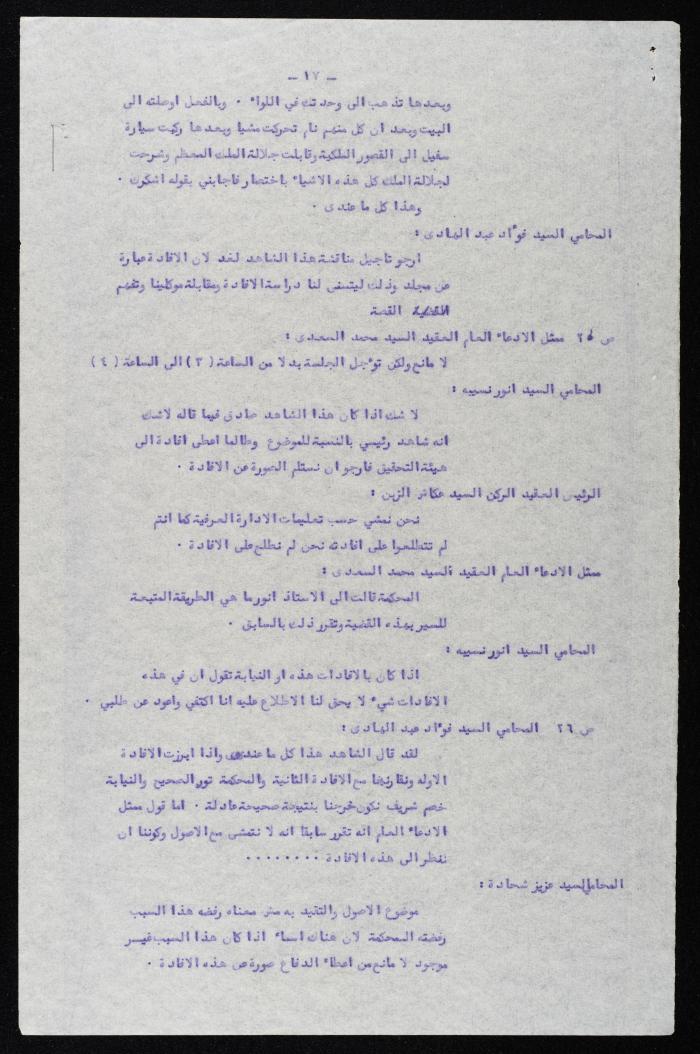 - ١٧ -
وبعدها تذهب الى وحدتك في اللواء . وبالفعل اوصلته الى
البيت وبعد ان كل منهم نام تحركت مشيا وبعدها ركبت سيارة
سفيل الى القصور الملكية وقابلت جلالة الملك المعظم وشرحت
لجلالة الملك كل هذه الاشياء باختصار فاجابني بقوله اشكرك .
وهذا كل ما عندي .
المحامي السيد فوءاد عبد الهادي :
ارجو تاجيل مناقشة هذا الشاهد لغد لان الافادة عبارة
عن مجلد وذلك ليتسنى لنا دراسة الافادة ومقابلة موكلينا وتفهم
القصة
ص ٢٥ ممثل الادعاء العام العقيد السيد محمد السعدي :
لا مانع ولكن توءجل الجلسة بدلا من الساعة ( ٣ ) الى الساعة ( ٤ )
المحامي السيد انور نسيبه :
لا شك اذا كان هذا الشاهد صادق فيما قاله لاشك
انه شاهد رئيسي بالنسبة للموضوع وطالما اعطى افادة الى
هيئة التحقيق فارجو ان نستلم الصورة عن الافادة .
الرئيس العقيد الركن السيد عكاش الزبن :
نحن نمشي حسب تعليمات الادارة العرفية كما انتم
لم تتطلعوا على افادته نحن لم نطلع على الافادة .
ممثل الادعاء العام العقيد السيد محمد السعدي :
المحكمة قالت الى الاستاذ انور ما هي الطريقة المتبعة
للسير بهذه القضية وتقرر ذلك بالسابق .
المحامي السيد انور نسيبه :
اذا كان بالافادات هذه او النيابة تقول ان في هذه
الافادات شيء لا يحق لنا الاطلاع عليه انا اكتفي واعود عن طلبي .
ص ٢٦ المحامي السيد فوءاد عبد الهادي :
لقد قال الشاهد هذا كل ما عندي واذا ابرزت الافادة
الاوله ونقارنها مع الافادة الثانية والمحكمة تور الصحيح والنيابة
خصم شريف نكون خرجنا بنتيجة صحيحة عادلة . اما قول ممثل
الادعاء العام انه تقرر سابقا انه لا نتمشى مع الاصول وكوننا ان
ننظر الى هذه الافادة ........
المحامي السيد عزيز شحادة :
موضوع الاصول والتقيد به متى معناه رفضه هذا السبب
رفضته المحكمة لان هناك اسماء اذا كان هذا السبب غير
موجود لا مانع من اعطاء الدفاع صورة عن هذه الافادة .